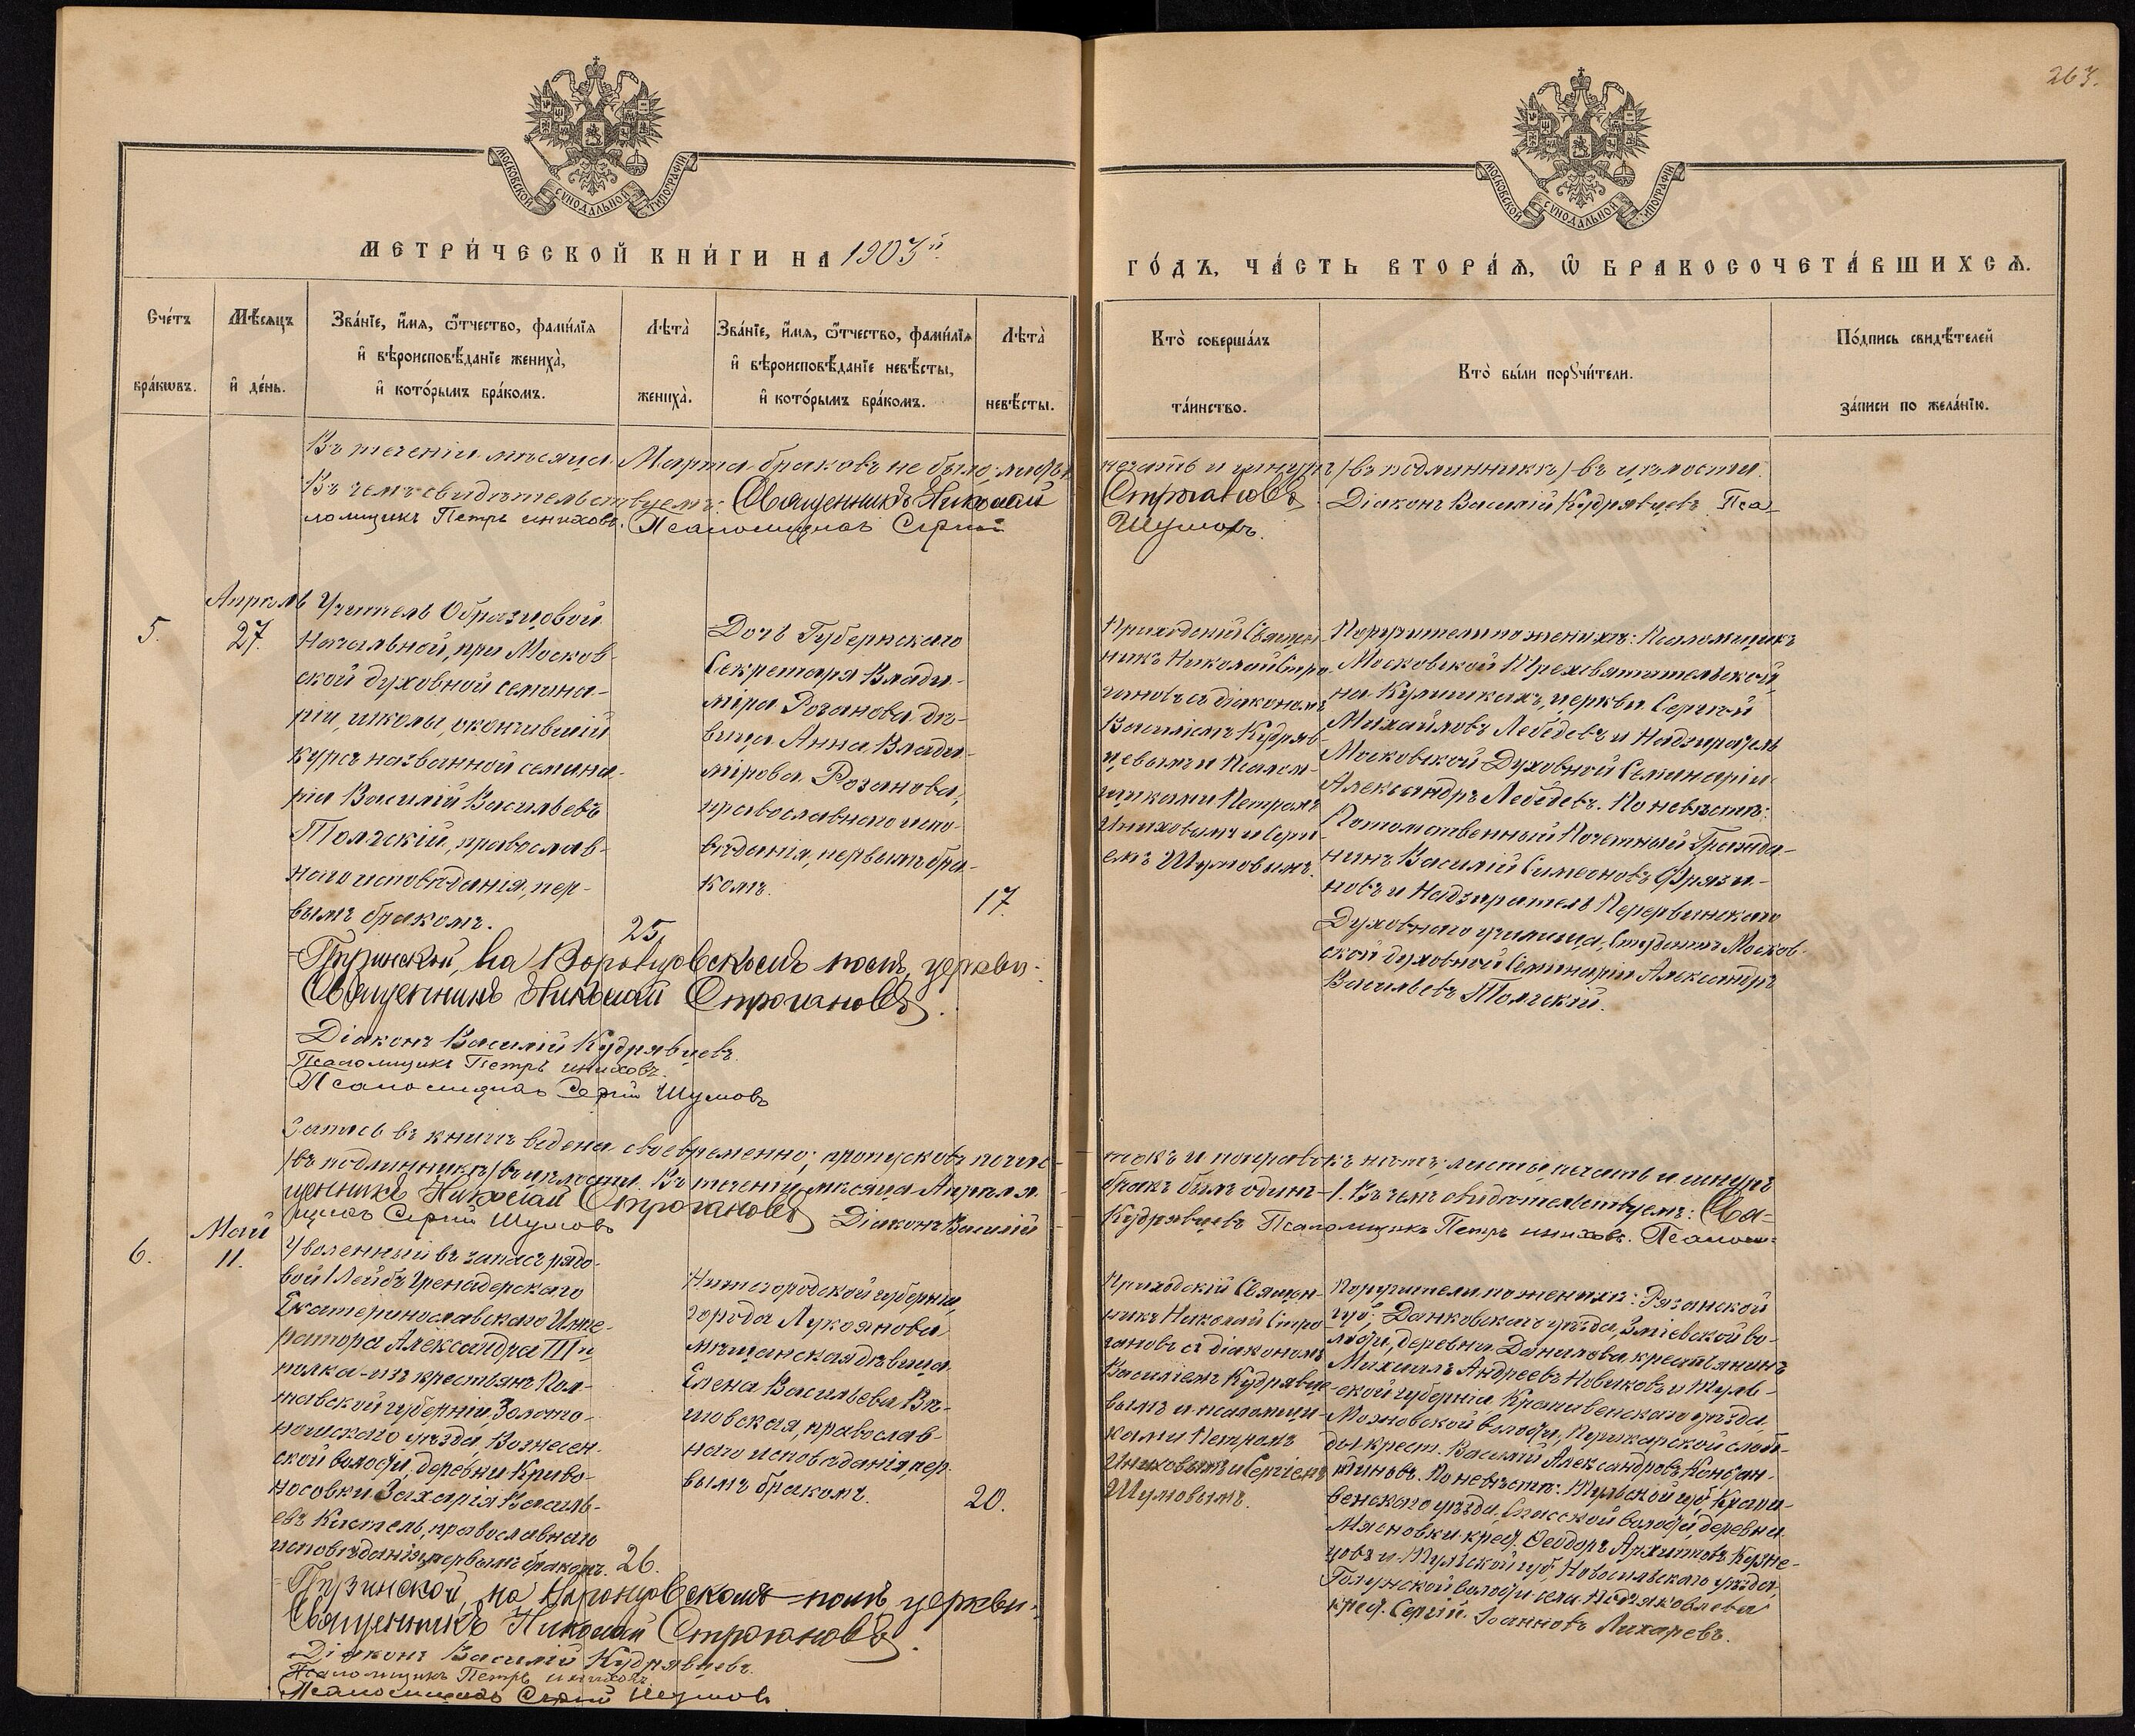 263.
МОСКОВСКОЙ СѴНОДАЛЬНОЙ ТИПОГРАФІИ
МОСКОВСКОЙ СѴНОДАЛЬНОЙ ТИПОГРАФІИ
МЕТРИ́ЧЕСКОЙ КНИ́ГИ НА 1903й
ГО́ДЪ, ЧА́СТЬ ВТОРА́Ѧ, Ѿ БРАКОСОЧЕТА́ВШИХСѦ.
Сче́тъ бра́кѡвъ.
Мѣ́сѧцъ и҆ де́нь.
Зва́нїе, и҆́мѧ, ѻ҆́тчество, фами́лїѧ
и҆ вѣроисповѣ́данїе жениха̀,
и҆ кото́рымъ бра́комъ.
Лѣта̀ жениха̀.
Зва́нїе, и҆́мѧ, ѻ҆́тчество, фами́лїѧ
и҆ вѣроисповѣ́данїе невѣ́сты,
и҆ кото́рымъ бра́комъ.
Лѣта̀ невѣ́сты.
Кто̀ соверша́лъ
та́инство.
Кто̀ бы́ли порꙋчи́тели.
По́дпись свидѣ́телей
за́писи по жела́нїю.
Въ теченіи мѣсяца Марта браковъ не было; листы, печать и шнуръ /въ подлинникѣ/ въ цѣлости.
Въ чемъ свидѣтельствуемъ: Священникъ Николай Строгановъ Діаконъ Василій Кудрявцевъ Пса-
ломщикъ Петръ Иниховъ. Псаломщикъ Сергій Шумовъ.
5.
Апрѣль
27.
Учитель Образцовой
Начальной, при Москов-
ской духовной семина-
ріи, школы, окончившій
курсъ названной семина-
ріи Василій Васильевъ
Толгскій, православ-
наго исповѣданія, пер-
вымъ бракомъ.
25.
Дочь Губернскаго
Секретаря Влади-
міра Розанова дѣ-
вица Анна Влади-
мірова Розанова,
православнаго испо-
вѣданія, первымъ бра-
комъ.
17.
Приходскій Священ-
никъ Николай Стро-
гановъ съ діакономъ
Василіемъ Кудряв-
цевымъ и Псалом-
щиками Петромъ
Иниховымъ и Серги-
емъ Шумовымъ.
Поручители по женихѣ: Псаломщикъ
Московской Трехсвятительской,
на Кулишкахъ, церкви Сергѣй
Михайловъ Лебедевъ и Надзиратель
Московской Духовной Семинаріи
Александръ Лебедевъ. По невѣстѣ:
Потомственный Почетный Гражда-
нинъ Василій Симеоновъ Фрязи-
новъ и Надзиратель Перервинскаго
Духовнаго училища, Студентъ Москов-
ской духовной Семинаріи Александръ
Васильевъ Толгскій.
Грузинской, на Воронцовскомъ полѣ, церкви
Священникъ Николай Строгановъ.
Діаконъ Василій Кудрявцевъ.
Псаломщикъ Петръ Иниховъ.
Псаломщикъ Сергій Шумовъ
Запись въ книгѣ ведена своевременно; пропусковъ, почис-токъ и поправокъ нѣтъ; листы, печать и шнуръ
/въ подлинникѣ/ въ цѣлости. Въ теченіи мѣсяца Апрѣля бракъ былъ одинъ -1. Въ чемъ свидѣтельствуемъ: Свя=
щенникъ Николай Строгановъ Діаконъ Василій Кудрявцевъ Псаломщикъ Петръ Иниховъ. Псалом=
щикъ Сергій Шумовъ
6.
Май
11.
Уволенный въ запасъ рядо-
вой 1 Лейбъ Гренадерскаго
Екатеринославскаго Импе-
ратора Александра III
полка - изъ крестьянъ Пол-
тавской губерніи, Золото-
ношскаго уѣзда, Вознесен-
ской волости, деревни Криво-
носовки Захарія Василь-
евъ Кистель, православнаго
исповѣданія, первымъ бракомъ.
26.
Нижегородской губерніи,
города Лукоянова
мѣщанская дѣвица
Елена Васильева Ви-
новская, православ-
наго исповѣданія, пер-
вымъ бракомъ.
20.
Приходскій Священ-
никъ Николай Стро-
гановъ съ діакономъ
Василіемъ Кудрявце-
вымъ и псаломщи-
ками Петромъ
Иниховымъ и Сергіемъ
Шумовымъ.
Поручители по женихѣ: Рязанской
губ., Данковскаго уѣзда, Змѣевской во-
лости, деревни Данилова крестьянинъ
Михаилъ Андреевъ Новиковъ и Туль-
ской губерніи, Крапивенскаго уѣзда,
волости, слобо-
ды крест. Василій Александровъ Констан-
тиновъ. По невѣстѣ: Тульской губ., Крапи-
венскаго уѣзда, Спасской волости, деревни
Мясновки крест. Ѳеодоръ Архиповъ Кузне-
цовъ и Тульской губ. Новосильскаго уѣзда,
Голунской волости, села
крест. Сергій Іоанновъ Лихаревъ.
Грузинской, на Воронцовскомъ полѣ, церкви
Священникъ Николай Строгановъ.
Діаконъ Василій Кудрявцевъ.
Псаломщикъ Петръ Иниховъ.
Псаломщикъ Сергій Шумовъ